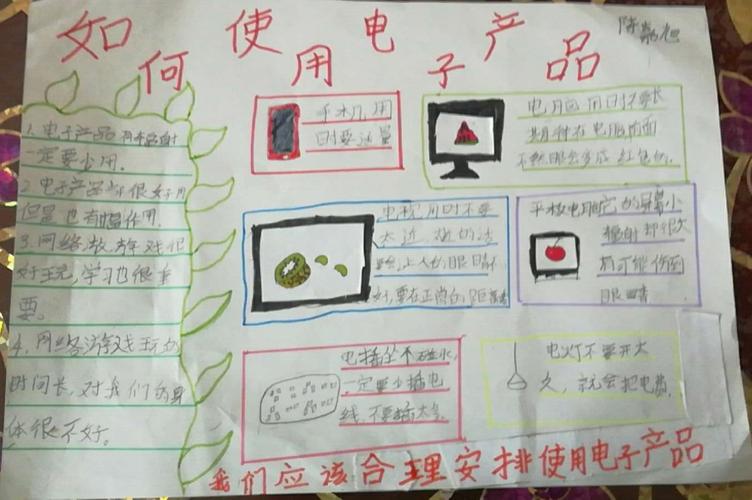 如何使用电子产品
1.电子产品有辐射
一定要少用。
2.电子产品很好用
但是也有副作用。
3.网络游戏很
好玩,学习也很重
要。
4.网络游戏玩的
时间长,对我们的身
体很不好。
手机用
时要适量
电脑用时不要长
期待在电脑前面
不然眼会变成红色的。
电视用时不要
太近
要在正常的距离
平板电脑它的屏幕小
辐射却很大
有可能伤到
眼睛
电插坐不碰水,
一定要少插电
线,不要插太多
电灯不要开太
久,就会把电费
我们应该合理安排使用电子产品